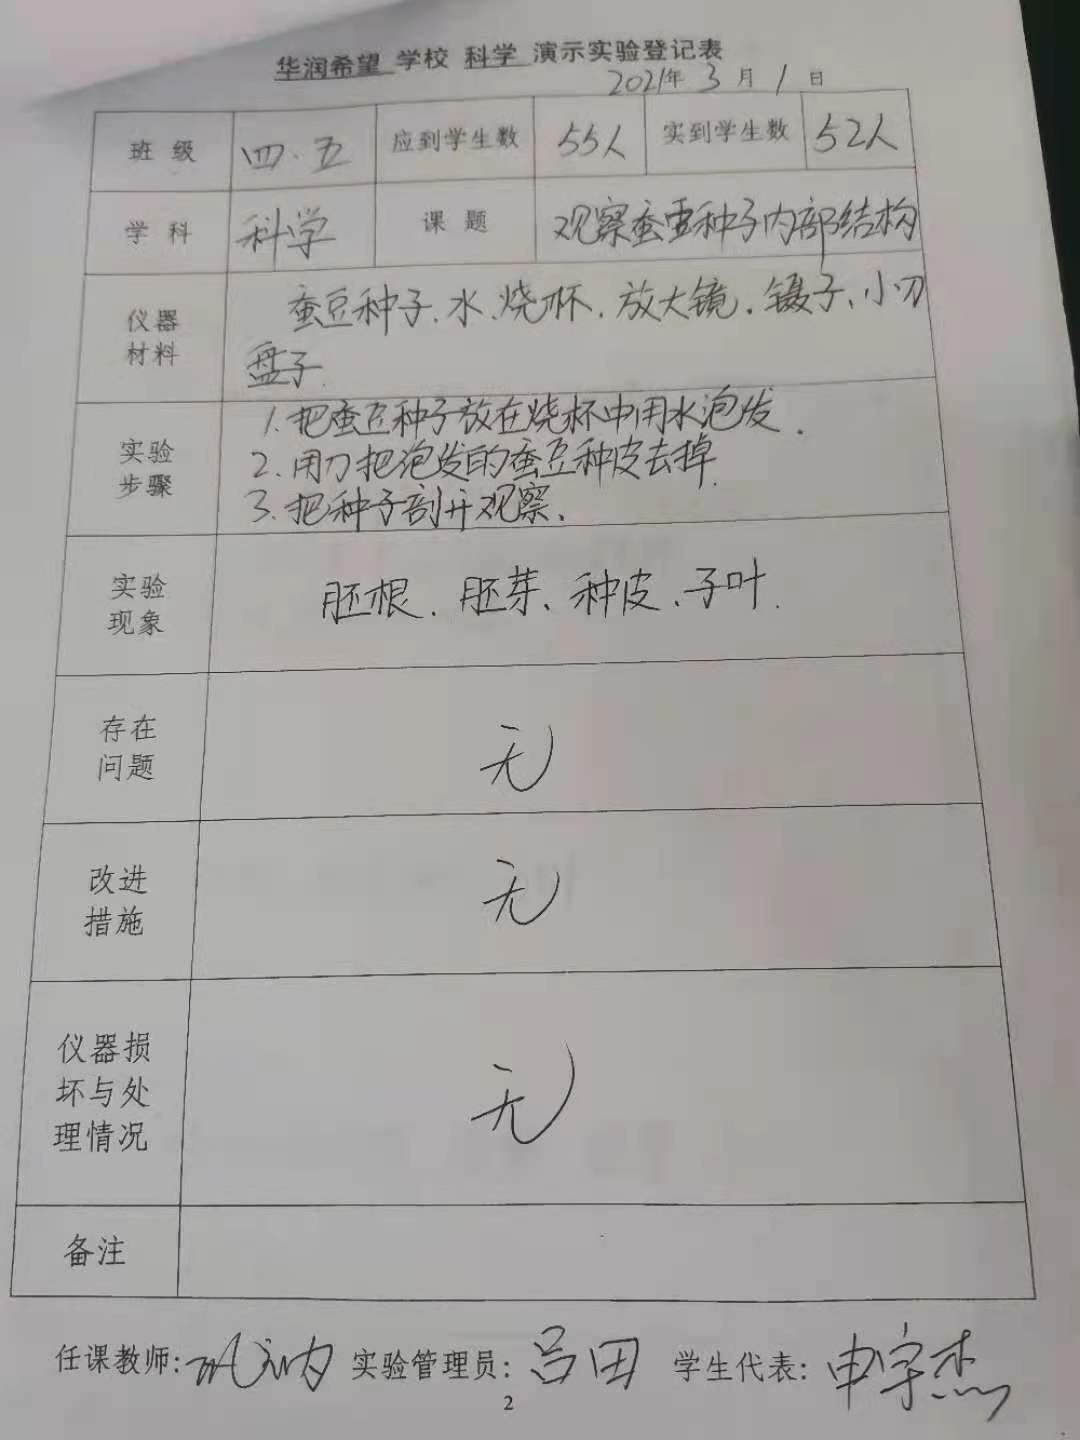 华润希望 学校 科学 演示实验登记表
2021年 3 月 1 日
班 级 四.五 应到学生数 55人 实到学生数 52人
学 科 科学 课 题 观察蚕豆种子内部结构
仪器
材料
蚕豆种子、水、烧杯、放大镜、镊子、小刀
盘子
实验
步骤
1.把蚕豆种子放在烧杯中用水泡发.
2.用刀把泡发的蚕豆种皮去掉.
3.把种子剖开观察.
实验
现象
胚根、胚芽、种皮、子叶.
存在
问题
无
改进
措施
无
仪器损
坏与处
理情况
无
备注
任课教师: 实验管理员: 吕田 学生代表: 申宇杰
2